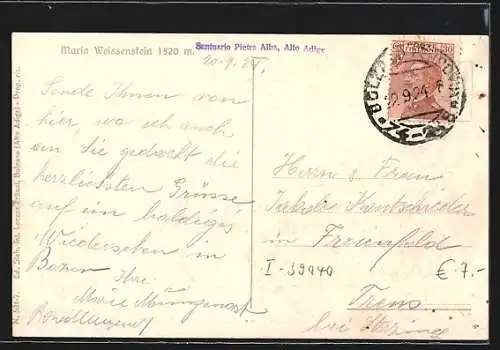 Maria Weissenstein 1520 m.
Santuario Pietra Alba, Alto Adige
20.9.24.
Sende Ihnen von
hier, wo ich auch
an Sie gedacht die
herzlichsten Grüsse
auf ein baldiges
Wiedersehen in
Bozen
Ihre
Marie
Herrn & Frau
Jakob Kontschieder
in
Freienfeld
I-39040
€ 7.-
Trens
bei Sterzing
BOLZANO
22.9.24
N. 524-7. Ed. Stab. fot. Lorenz Fränzl, Bolzano (Alto Adige) - Prop. ris.